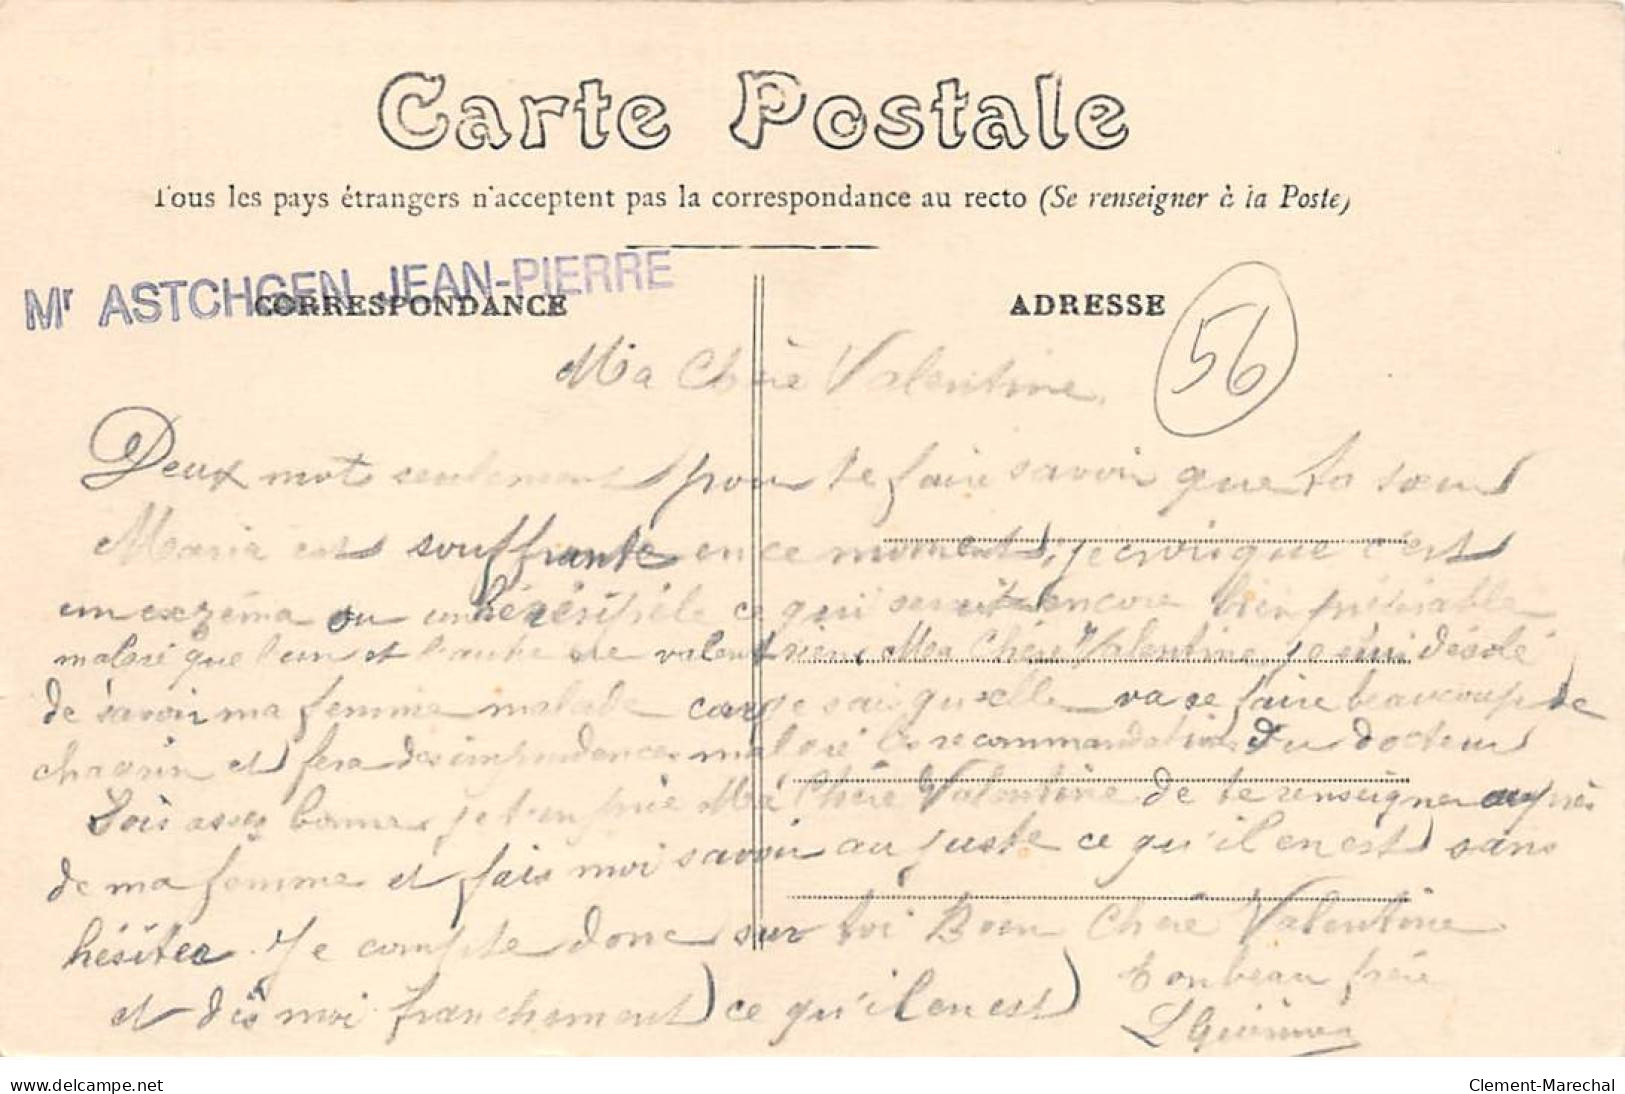 Carte Postale
Tous les pays étrangers n'acceptent pas la correspondance au recto (Se renseigner à la Poste)
Mr ASTCHGEN JEAN-PIERRE
CORRESPONDANCE
ADRESSE
56
Ma Chère Valentine
Deux mot seulement pour te faire savoir que ta sœur
Maria est souffrante en ce moment, je crois que c'est
un exzéma ou un hérésipèle ce qui serait encore bien préférable
malgré que l'un et l'autre ne valent rien, Ma Chère Valentine, je suis désolé
de savoir ma femme malade car je sais qu'elle va se faire beaucoup de
chagrin et fera des imprudences malgré les recommandations du docteur
Sois assez bonne, je t'en prie Ma Chère Valentine de te renseigner auprès
de ma femme et fais moi savoir au juste ce qu'il en est sans
hésiter. Je compte donc sur toi Bien Chère Valentine
et dis moi franchement ce qu'il en est
ton beau frère
delcampe.net
Clement-Marechal